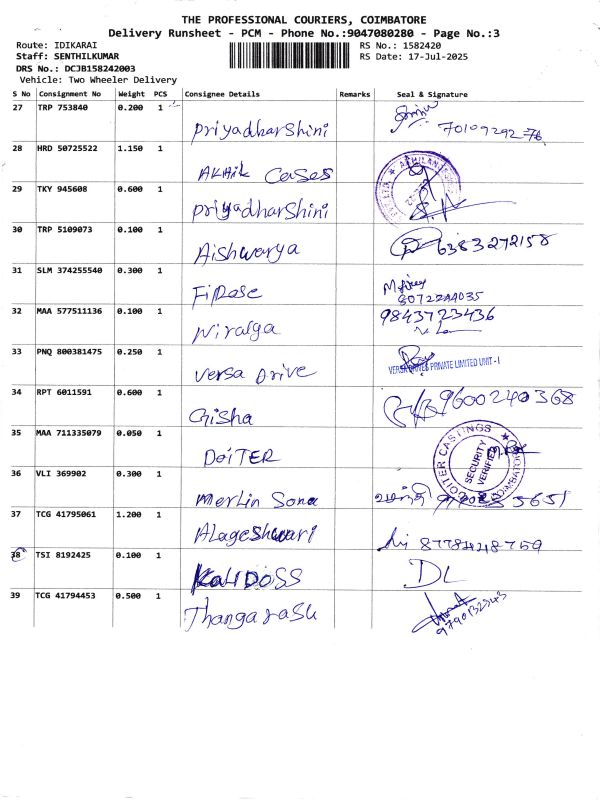 THE PROFESSIONAL COURIERS, COIMBATORE
Delivery Runsheet - PCM - Phone No.:9047080280 - Page No.:3
Route: IDIKARAI RS No.: 1582420
Staff: SENTHILKUMAR RS Date: 17-Jul-2025
DRS No.: DCJB158242003
Vehicle: Two Wheeler Delivery
S No Consignment No Weight PCS Consignee Details Remarks Seal & Signature
27 TRP 753840 0.200 1
Priyadharshini 7010929276
28 HRD 50725522 1.150 1
Akhik Cases
29 TKY 945608 0.600 1
Priyadharshini
30 TRP 5109073 0.100 1
Aishwarya 6383272158
31 SLM 374255540 0.300 1
Firose
8072244035
32 MAA 577511136 0.100 1 9843723436
Niralga
33 PNQ 800381475 0.250 1
Versa Drive VERSA DRIVES PRIVATE LIMITED UNIT - I
34 RPT 6011591 0.600 1
Grisha 9600240368
35 MAA 711335079 0.050 1
DOITER DOITER CASTINGS SECURITY VERIFIED COIMBATORE
36 VLI 369902 0.300 1
Merlin Sona
37 TCG 41795061 1.200 1
Alageshwari 8778418759
38 TSI 8192425 0.100 1
KALIDOSS DL
39 TCG 41794453 0.500 1
Thangarasu
9790132943